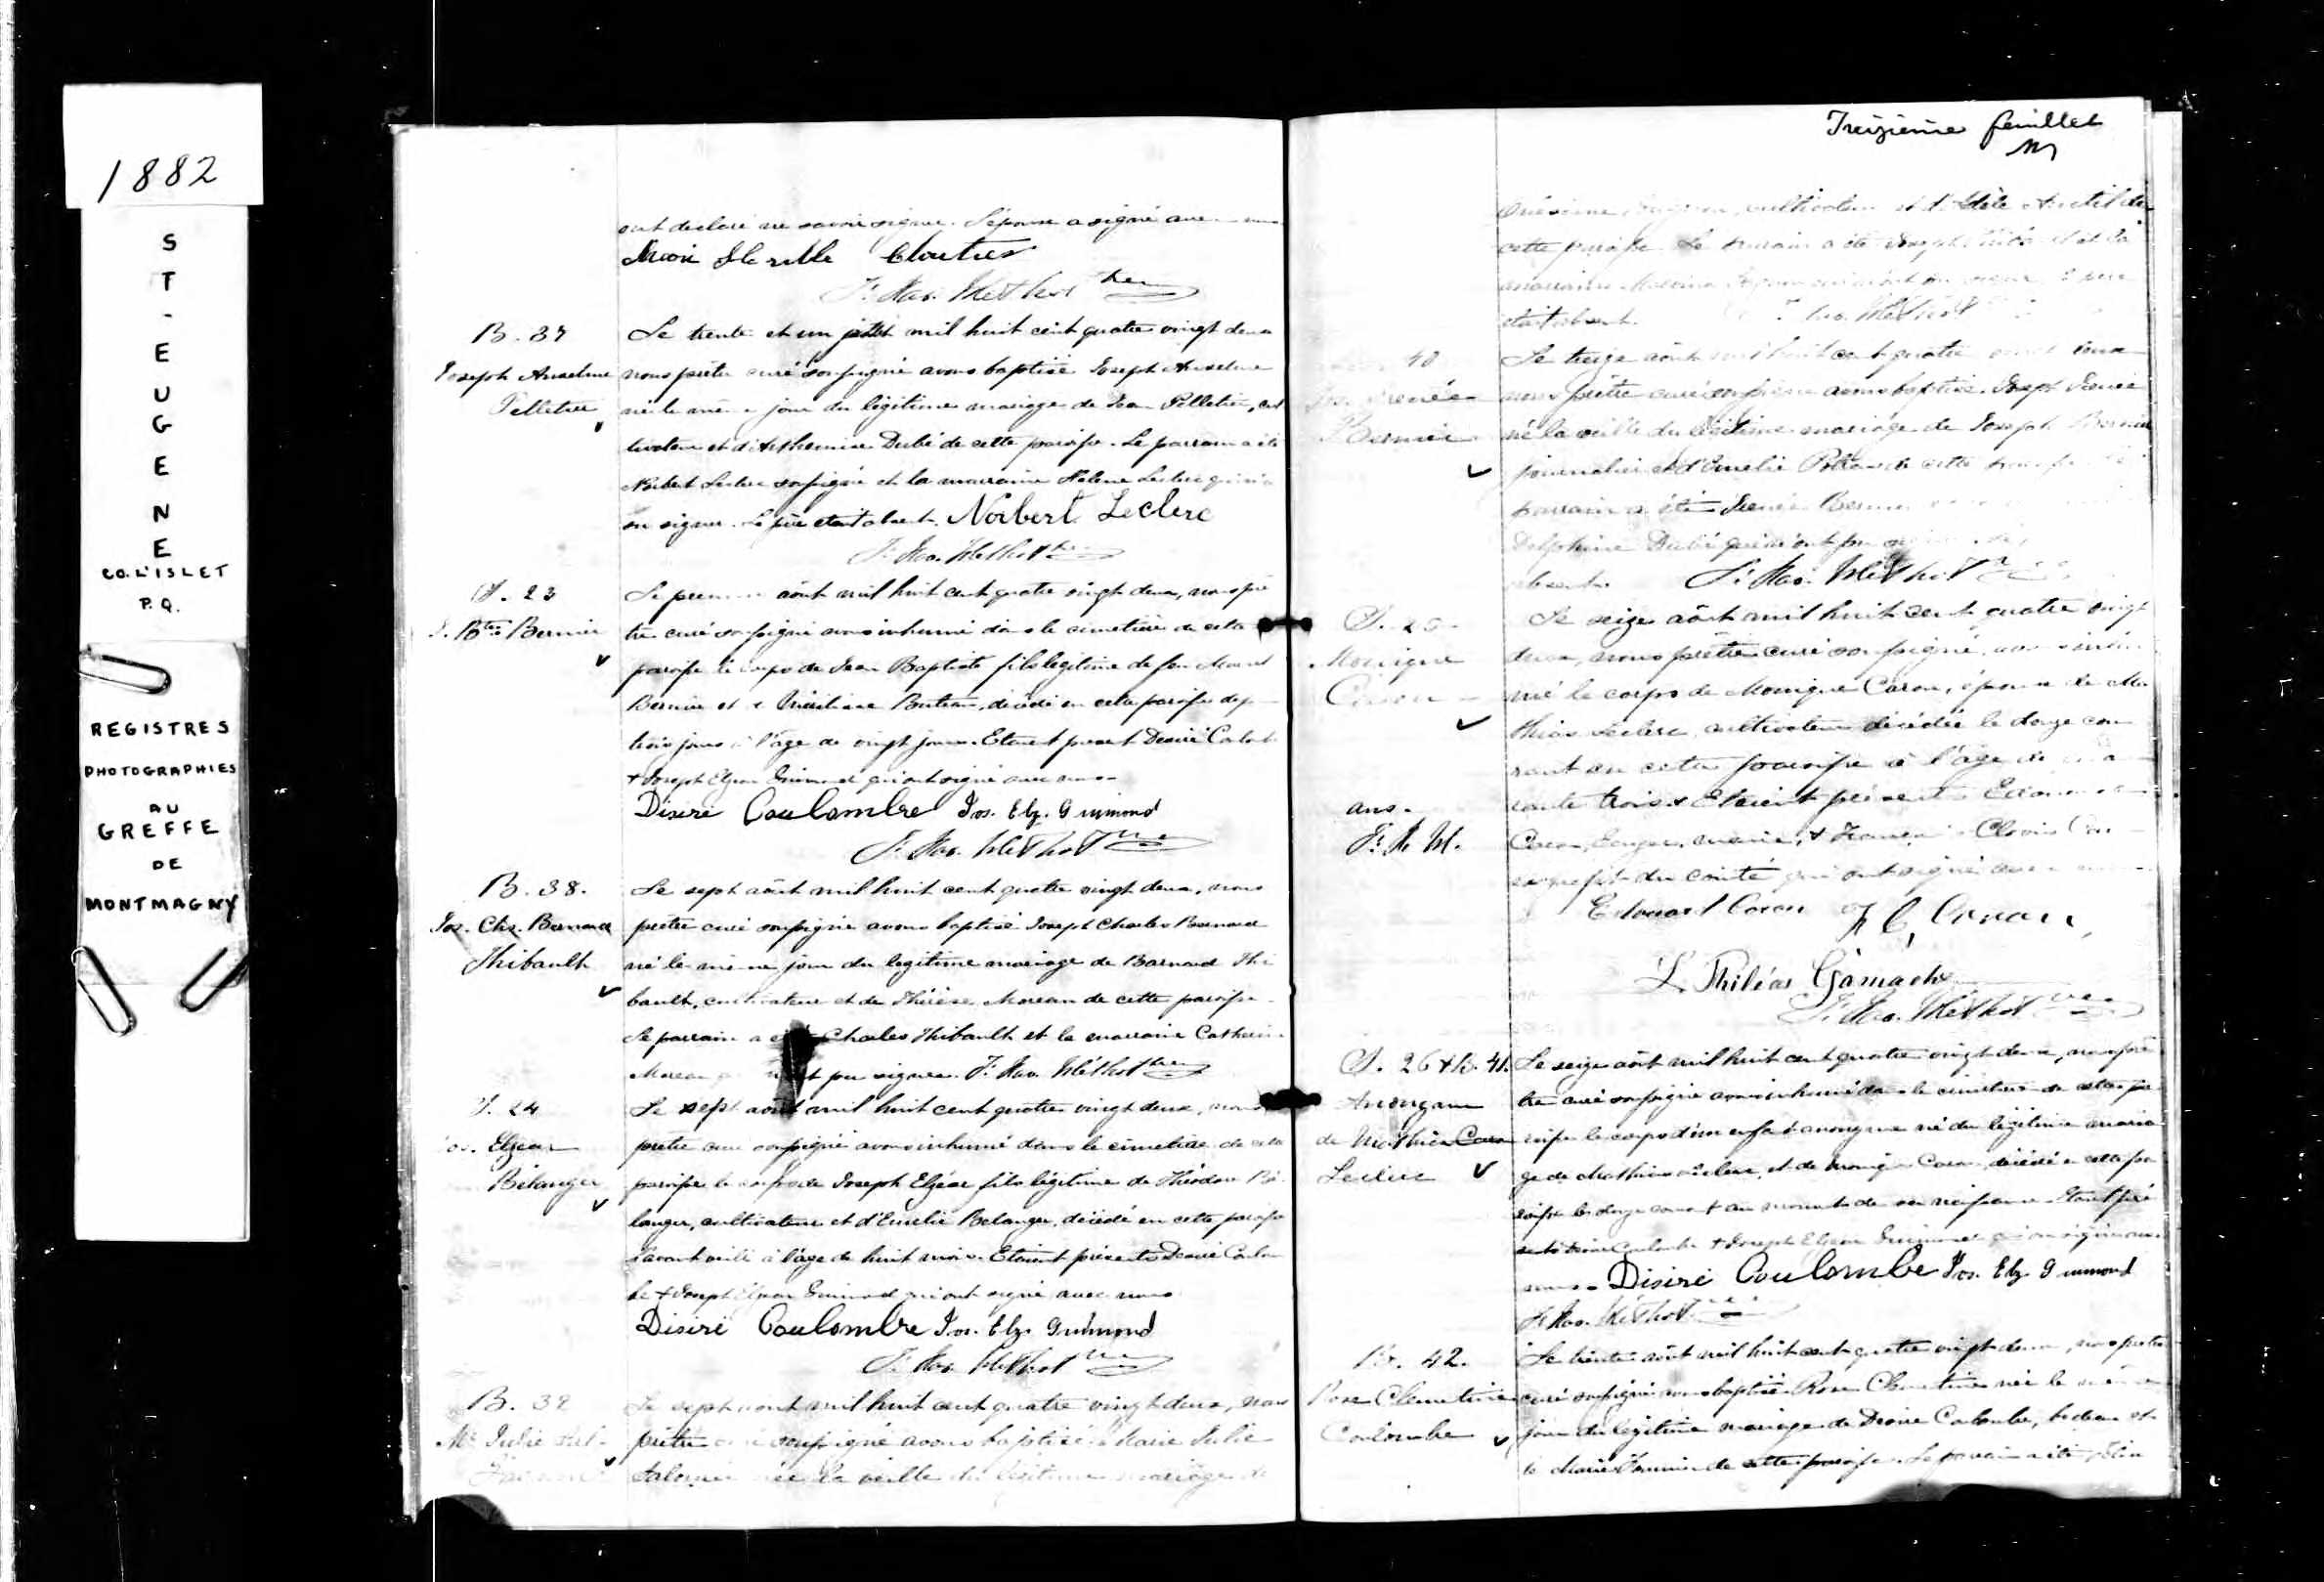 1882
S
T
-
E
U
G
E
N
E
CO. L'ISLET
P.Q.
REGISTRES
PHOTOGRAPHIES
AU
GREFFE
DE
MONTMAGNY
ont déclaré ne savoir signer. L'épouse a signé avec
Cloutier
Frs Xav. Méthot Ptre
B. 37
Joseph Anselme
Pelletier
Le trente et un juillet mil huit cent quatre vingt deux
nous prêtre curé soussigné avons baptisé Joseph Anselme
né le même jour du légitime mariage de Jean Pelletier, cul
tivateur et d'Arthemise Dubé de cette paroisse. Le parrain a été
Norbert Leclerc soussigné et la marraine Hélène Leclerc qui n'a
su signer. Le père étant absent. Norbert Leclerc
Frs Xav. Méthot Ptre
S. 23
J. Bte Bernier
Le premier août mil huit cent quatre vingt deux, nous prê
tre curé soussigné avons inhumé dans le cimetière de cette
paroisse le corps de Jean Baptiste fils légitime de feu
Bernier et décédé en cette paroisse depuis
trois jours à l'âge de vingt jours. Etaient présents Désiré Coulombe
& Joseph Elzéar Guimond qui ont signé avec nous.
Disiré Coulombre Jos. Elz. Guimond
Frs Xav. Méthot Ptre
B. 38.
Jos. Chs. Barnard
Thibault
Le sept août mil huit cent quatre vingt deux, nous
prêtre curé soussigné avons baptisé Joseph Charles Barnard
né le même jour du légitime mariage de Barnard Thi
bault, cultivateur et de Thérèse Moreau de cette paroisse.
Le parrain a été Charles Thibault et la marraine Catherine
Moreau qui n'ont pu signer. Frs Xav. Méthot Ptre
S. 24
Jos. Elzéar
Bélanger
Le sept août mil huit cent quatre vingt deux, nous
prêtre curé soussigné avons inhumé dans le cimetière de cette
paroisse le corps de Joseph Elzéar fils légitime de Théodore Bé
langer, cultivateur et d'Emelie Belanger, décédé en cette paroisse
l'avant veille à l'âge de huit mois. Etaient présents Désiré Coulom
be & Joseph Elzéar Guimond qui ont signé avec nous
Disiré Coulombre Jos. Elz. Guimond
Frs Xav. Méthot Ptre
B. 39
Me Julie
Le sept août mil huit cent quatre vingt deux, nous
prêtre curé soussigné avons baptisé Marie Julie
née la veille du légitime mariage de
Treizième feuillet
cultivateur et d'Adèle de
cette paroisse Le parrain a été Joseph et la
marraine qui n'ont su signer Le père
étant absent. Frs Xav. Méthot
40
Bernier
Le treize août mil huit cent quatre vingt deux
nous prêtre curé soussigné avons baptisé Joseph
né la veille du légitime mariage de Joseph Bernier
journalier et d'Emelie de cette paroisse Le
parrain a été Bernier
Delphine Dubé qui n'ont pu signer
absent. Frs Xav. Méthot Ptre
S. 25
Monique
Caron
Le seize août mil huit cent quatre vingt
deux, nous prêtre curé soussigné, avons inhu
mé le corps de Monique Caron, épouse de Ma
thias Leclerc cultivateur décédée le douze cou
rant en cette paroisse à l'âge de
rante trois x Etaient présents Edouard
Caron, maire, & François Clovis Caron
du comté qui ont signé avec
ans.
F. X. M.
Edouard Caron F. C. Caron,
L. Philéas Gamache
Frs Xav. Méthot Ptre
S. 26 & B. 41.
Anonyme
de Mathias Caron
Leclerc
Le seize août mil huit cent quatre vingt deux, nous prê
tre curé soussigné avons inhumé dans le cimetière de cette pa
roisse le corps d'un enfant anonyme né du légitime maria
ge de Mathias Leclerc, et de Monique Caron, décédé en cette pa
roisse le douze courant au moment de sa naissance. Etaient pré
sents Désiré Coulombe & Joseph Elzéar Guimond qui ont signé avec
nous. Disiré Coulombe Jos. Elz. Guimond
Frs Xav. Méthot Ptre
B. 42.
Rose Clementine
Coulombe
Le trente août mil huit cent quatre vingt deux, nous prêtre
curé soussigné avons baptisé Rose Clementine née le même
jour du légitime mariage de Désiré Coulombe, bedeau et
de Marie Fournier de cette paroisse. Le parrain a été